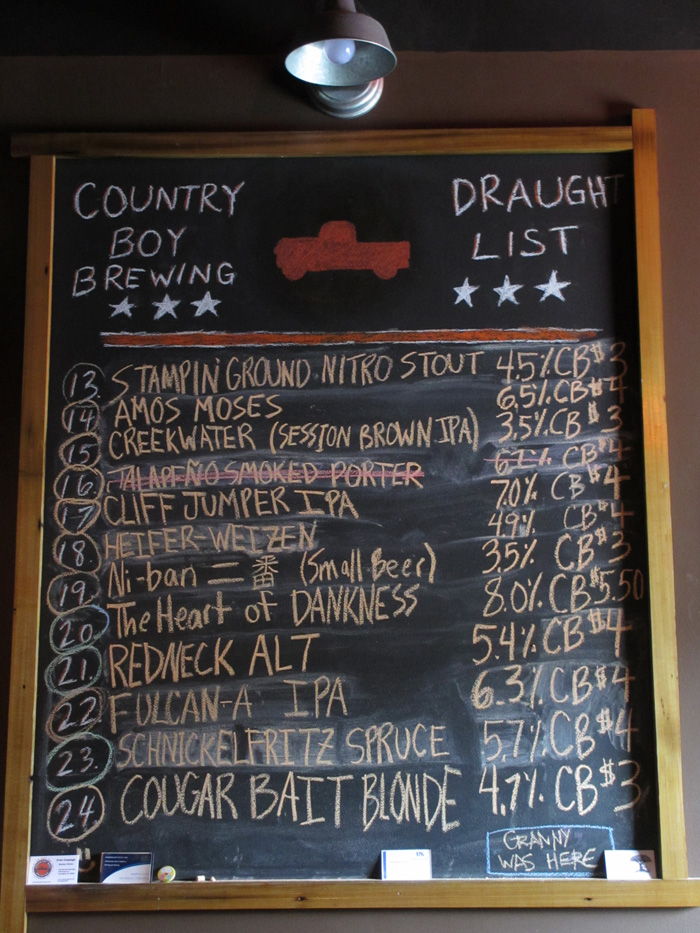 COUNTRY
BOY
BREWING
DRAUGHT
LIST
13. STAMPIN' GROUND NITRO STOUT 4.5% CB $3
14. AMOS MOSES 6.5% CB $4
15. CREEKWATER (SESSION BROWN IPA) 3.5% CB $3
16. JALAPEÑO SMOKED PORTER CB $4
17. CLIFF JUMPER IPA 7.0% CB $4
18. HEIFER-WEIZEN 4.9% CB $4
19. Ni-ban 二番 (Small Beer) 3.5% CB $3
20. The Heart of DANKNESS 8.0% CB $5.50
21. REDNECK ALT 5.4% CB $4
22. FULCAN-A IPA 6.3% CB $4
23. SCHNICKELFRITZ SPRUCE 5.7% CB $4
24 COUGAR BAIT BLONDE 4.7% CB $3
GRANNY
WAS HERE